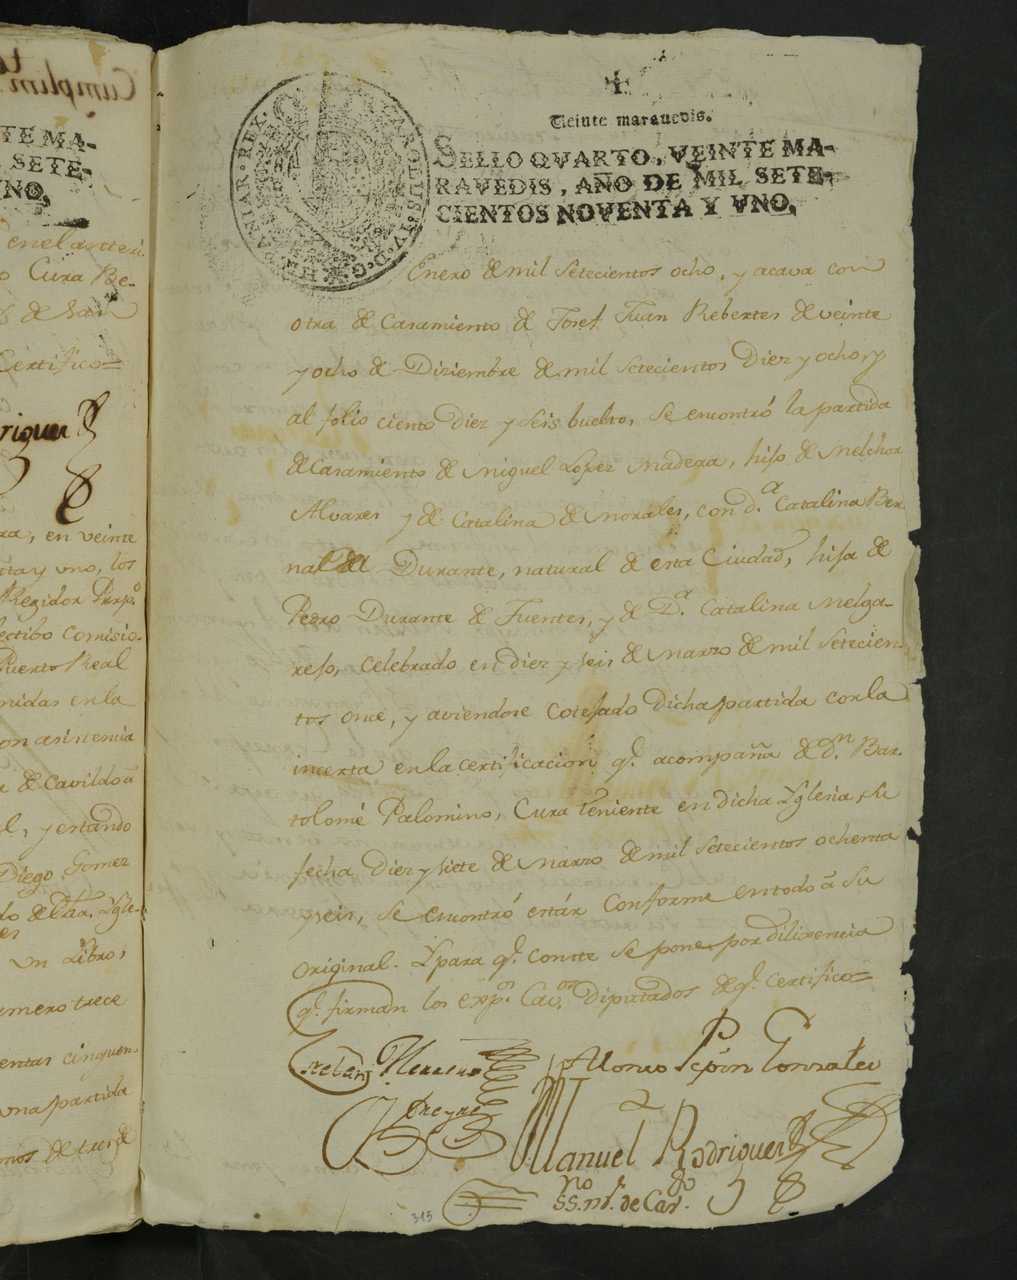 Cumplim to
TE MA-
SETE-
VNO,
en el anteri
Cura Be-
de San
Certifico=
riguez
ra, en veinte
ta y uno, los
Regidor Perp.o
ectibo Comisio-
Puerto Real
nidas en la
on asistencia
de Cavildo a
l, y estando
Diego Gomez
do de Yglesi
un Libro,
umero trece
entas cinquen-
una partida
nos de tres de
✝
Veinte marauedis.
SELLO QVARTO, VEINTE MA-
RAVEDIS, AÑO DE MIL SETE-
CIENTOS NOVENTA Y VNO.
CAROLUS·IV·D·G·HISPANIAR·REX·
Enero de mil setecientos ocho, y acava con
otra de Casamiento de Josef Juan Rebertes de veinte
y ocho de Diziembre de mil setecientos Diez y ocho, y
al folio ciento Diez y seis buelto, se encontró la partida
de Casamiento de Miguel Lopez Madera, hijo de Melchor
Alvares y de Catalina de Morales, con d.a Catalina Ber-
nal de Durante, natural de esta Ciudad, hija de
Pedro Durante de Fuentes, y de D.a Catalina Melga-
rejo, celebrado en diez y seis de Marzo de mil setecien-
tos once, y aviendose cotejado dicha partida con la
incerta en la certificacion q.e acompaña de d.n Bar-
tolomé Palomino, Cura teniente en dicha Yglesia, su
fecha Diez y siete de Marzo de mil setecientos ochenta
y seis, se encontró estár conforme en todo á su
original. Y para q.e conste se pone por diligencia
q.e firman los exp.os Cav.os Diputados de q.e certifico=
Esteban Moreno Alonso Pepin Gonzalez
Manuel Rodriguez
SS.no m.r de Cav.do
315